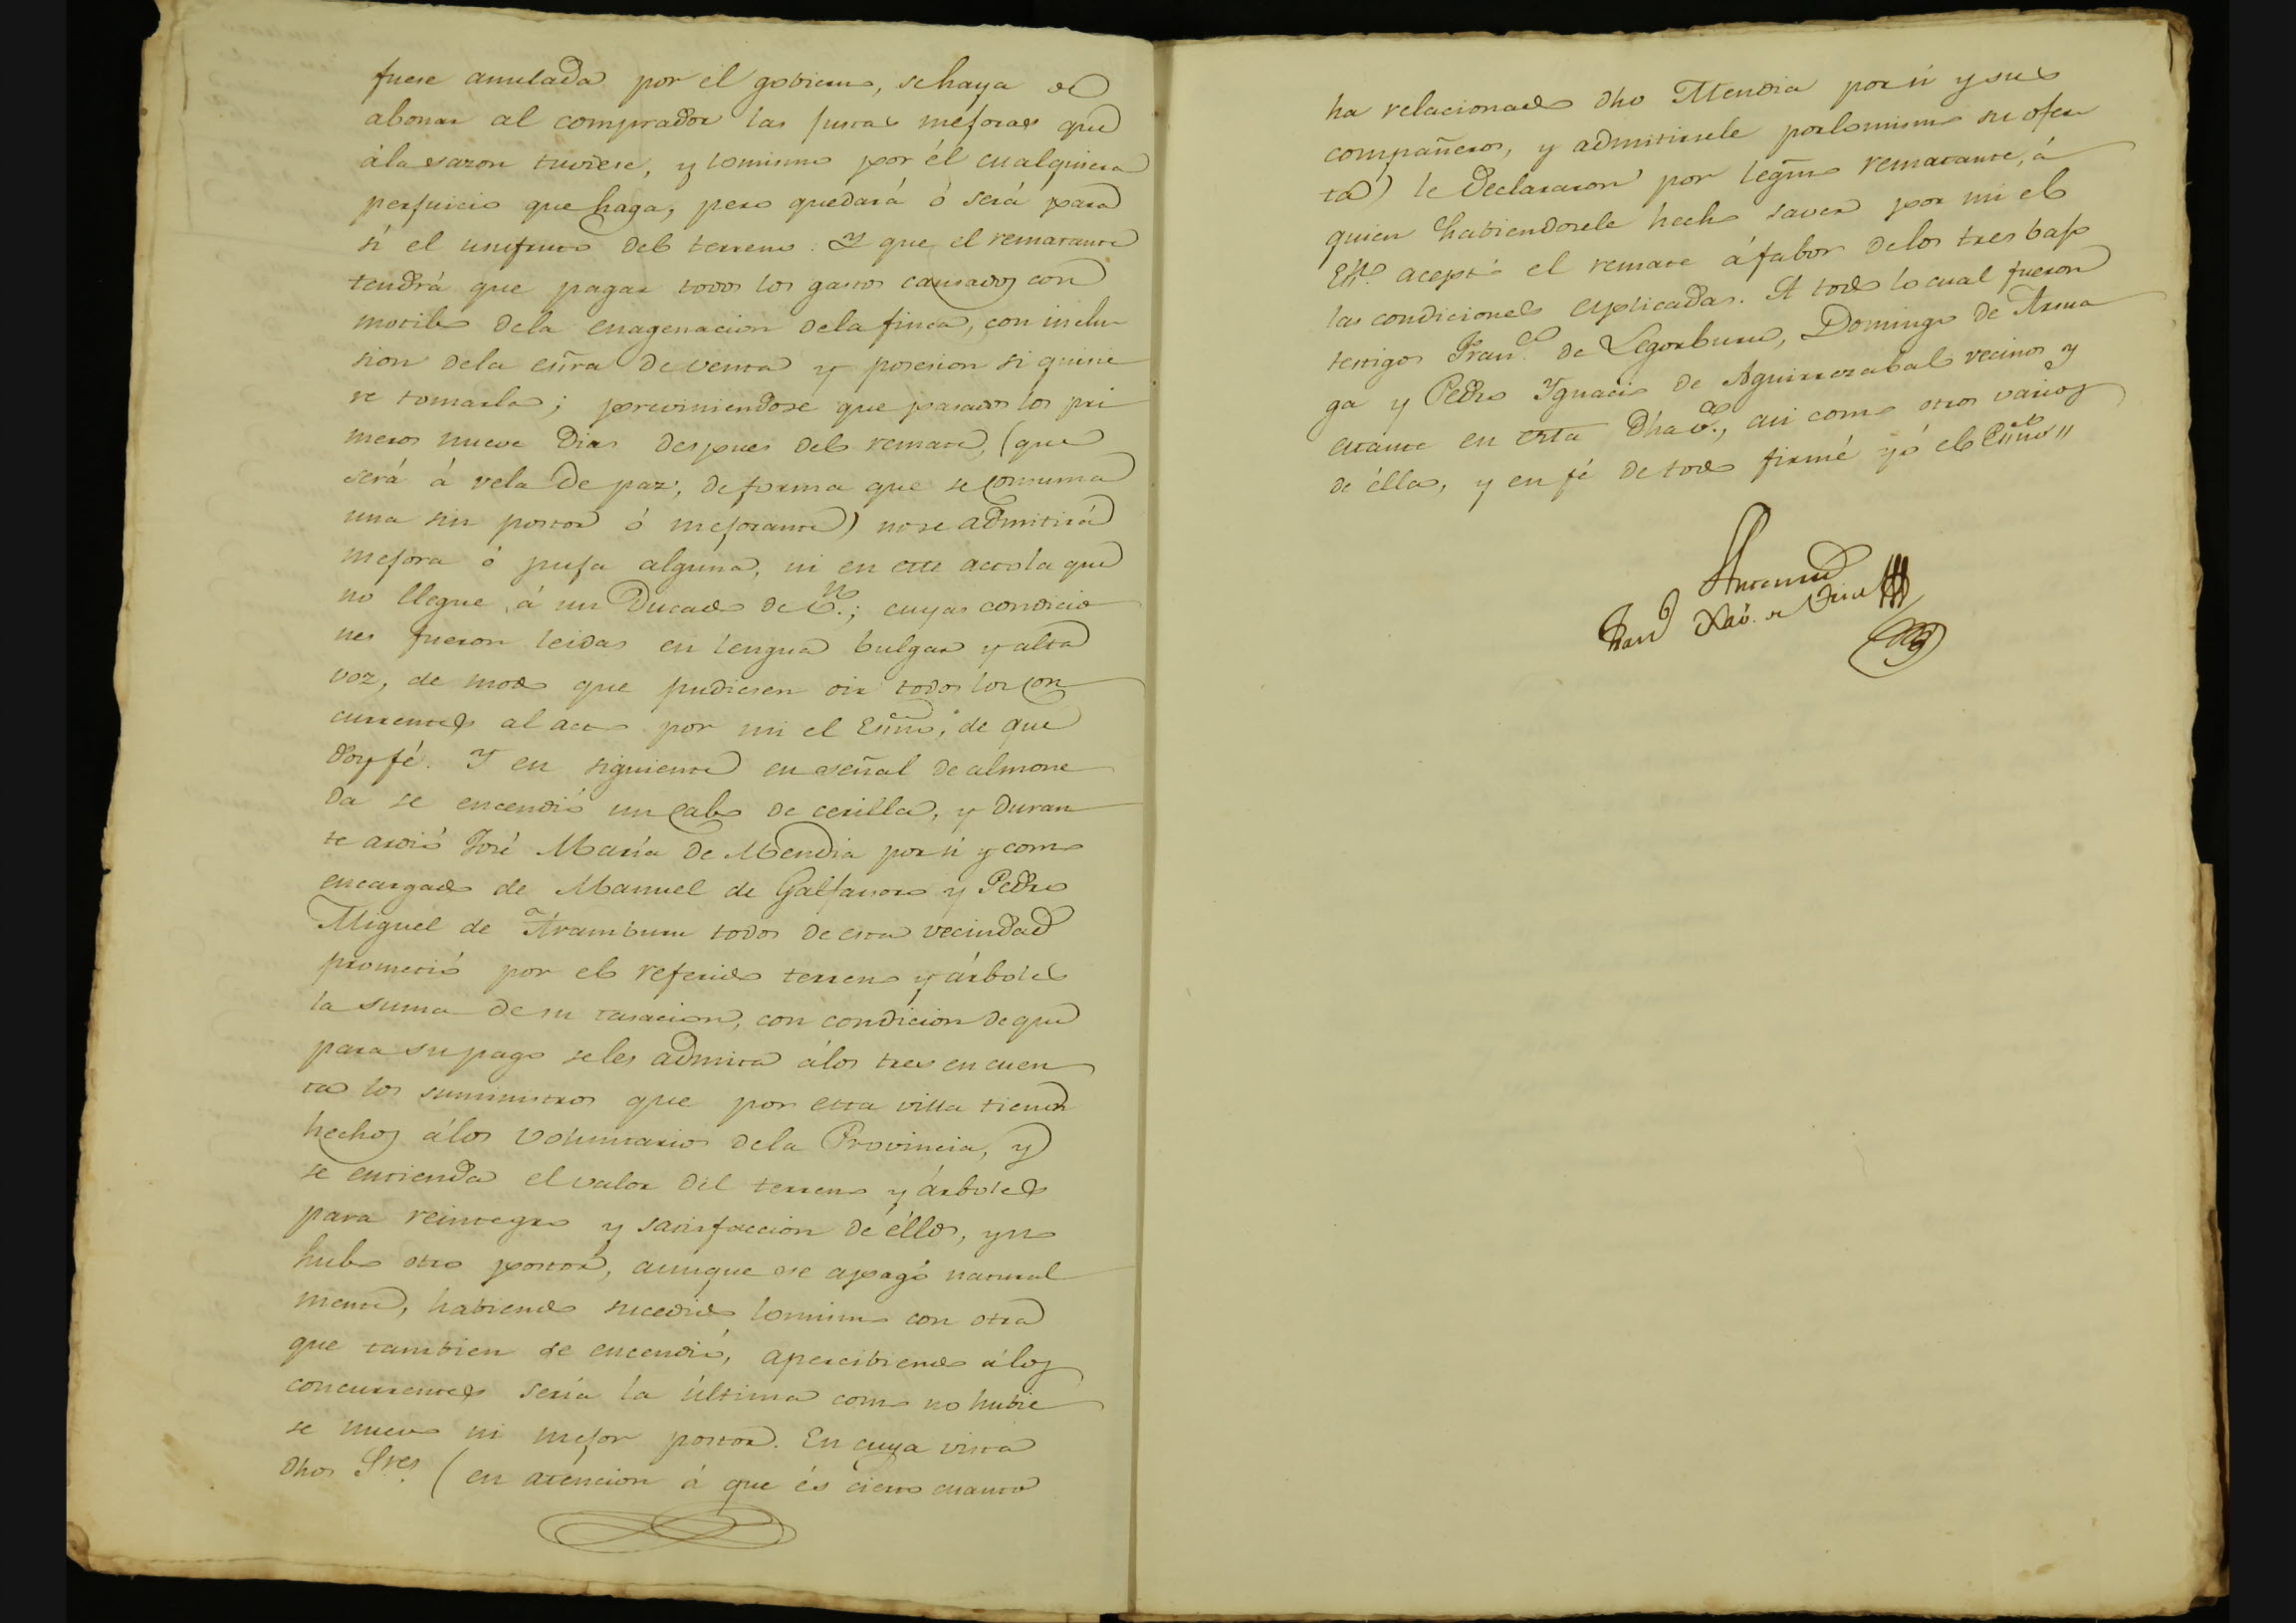 fuese anulada por el gobierno, se haya de
abonar al comprador las justas mejoras que
á la sazon tuviere, y lo mismo por él cualquiera
perjuicio que haga, pero quedará ó será para
sí el usufruto del terreno. Y que el rematante
tendrá que pagar todos los gastos causados con
motibo de la enagenacion de la finca, con inclu
sion de la esñra de venta y posesion si quisie
re tomarla; previniendose que pasados los pri
meros nueve dias despues del remate, (que
será á vela de paz, de forma que se consuma
una sin postor ó mejorante) no se admitirá
mejora ó puja alguna, ni en este acto la que
no llegue á un Ducado de v.n; cuyas condicio
nes fueron leidas en lengua bulgar y alta
voz, de modo que pudiesen oir todos los con
currentes al acto por mi el Esñno, de que
doy fé. Y en siguiente en señal de almone
da se encendió un cabo de cerilla, y duran
te ardió José María de Mendia por sí y como
encargado de Manuel de Galfarsoro y Pedro
Miguel de Aramburu todos de esta vecindad
prometió por el referido terreno y árboles
la suma de su tasacion, con condicion de que
para su pago se les admita á los tres en cuen
ta los suministros que por esta villa tienen
hechos á los voluntarios de la Provincia, y
se entienda el valor del terreno y árboles
para reintegro y satisfaccion de éllos, y no
hubo otro postor, aunque se apagó natural
mente, habiendo sucedido lo mismo con otra
que tambien se encendió, apercibiendo á los
concurrentes sería la última como no hubie
se nuevo ni mejor postor. En cuya vista
dhos S.res (en atencion á que és cierto cuanto
ha relacionado dho Mendia por sí y sus
compañeros, y admitirsele por lo mismo su ofer
ta) le declararon por legmo rematante, á
quien habiendosele hecho saver por mi el
Esño aceptó el remate á fabor de los tres bajo
las condiciones esplicadas. A todo lo cual fueron
testigos Fran.co de Legorburu, Domingo de Arma
ga y Pedro Ygnacio de Aguirrezabal vecinos y
estante en esta dha v.a, asi como otros varios
de élla, y en fé de todo firmé yó el Esñno
Antemi
Fran.co Xav.